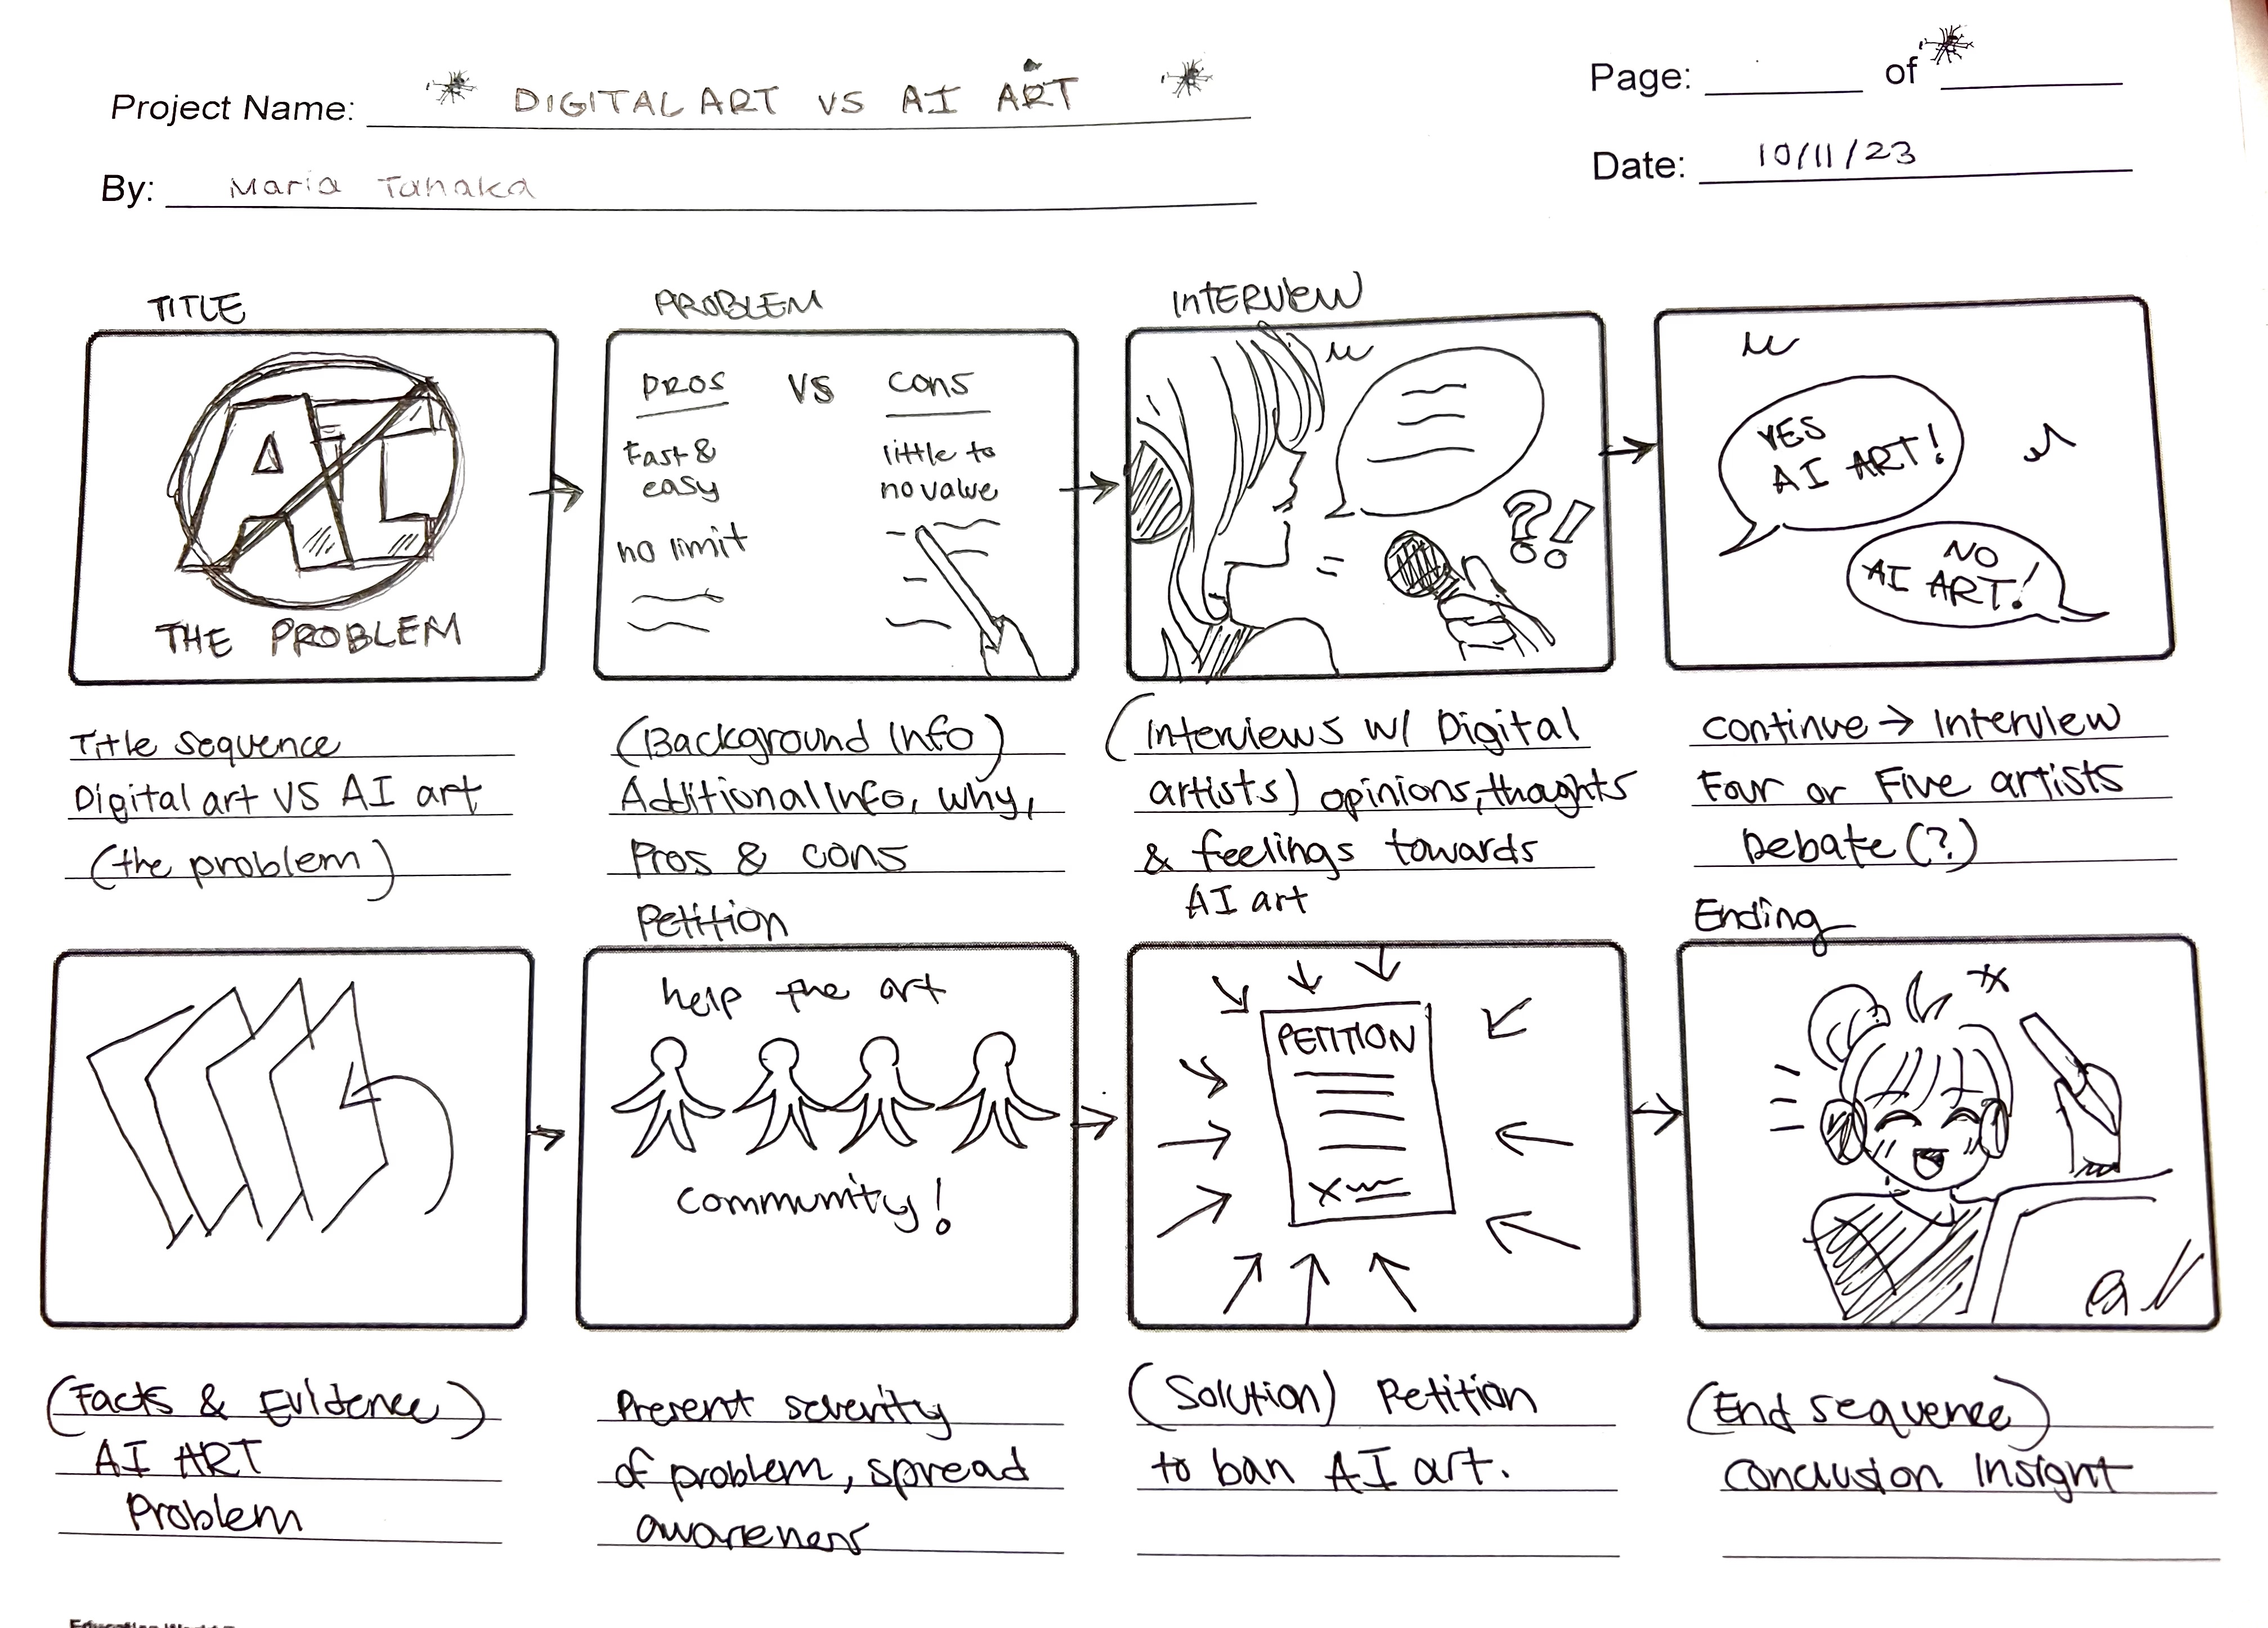 Project Name: DIGITAL ART VS AI ART
Page: of
By: Maria Tanaka
Date: 10/11/23
TITLE
AI
THE PROBLEM
Title sequence
Digital art VS AI art
(the problem)
PROBLEM
PROS VS CONS
Fast &
easy
no limit
little to
no value
(Background Info)
Additional Info, why,
Pros & cons
INTERVIEW
?!
(Interviews w/ Digital
artists) opinions, thoghts
& feelings towards
AI art
YES
AI ART!
NO
AI ART!
continue → Interview
Four or Five artists
Debate (?)
(Facts & Evidence)
AI ART
Problem
Petition
help the art
community!
Present severity
of problem, spread
awareness
PETITION
X
(Solution) Petition
to ban AI art.
Ending
(End sequence)
conclusion Insight